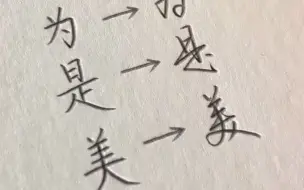 为 →
是 → 是
美 → 美